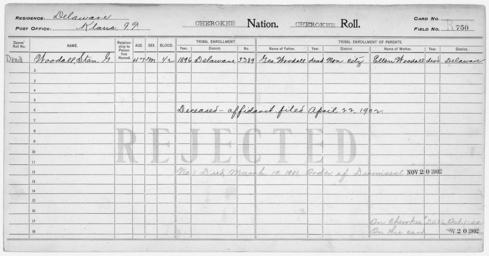 RESIDENCE: Delaware
POST OFFICE: Klaus I.T.
CHEROKEE Nation. CHEROKEE Roll.
CARD NO.
FIELD NO. D 750
Dawes' Roll No. NAME. Relationship to Person first Named. AGE SEX BLOOD TRIBAL ENROLLMENT Year. District. No. TRIBAL ENROLLMENT OF PARENTS Name of Father. Year. District. Name of Mother. Year. District.
Dead Woodall, Stan G 47 M 1/2 1896 Delaware Geo Woodall dead Non city Ellen Woodall dead Delaware
Deceased - affidavit filed April 22, 1902
REJECTED
No. 1 Died March Order of Dismissal NOV 20 1902
On Cherokee
On this card 20 1902